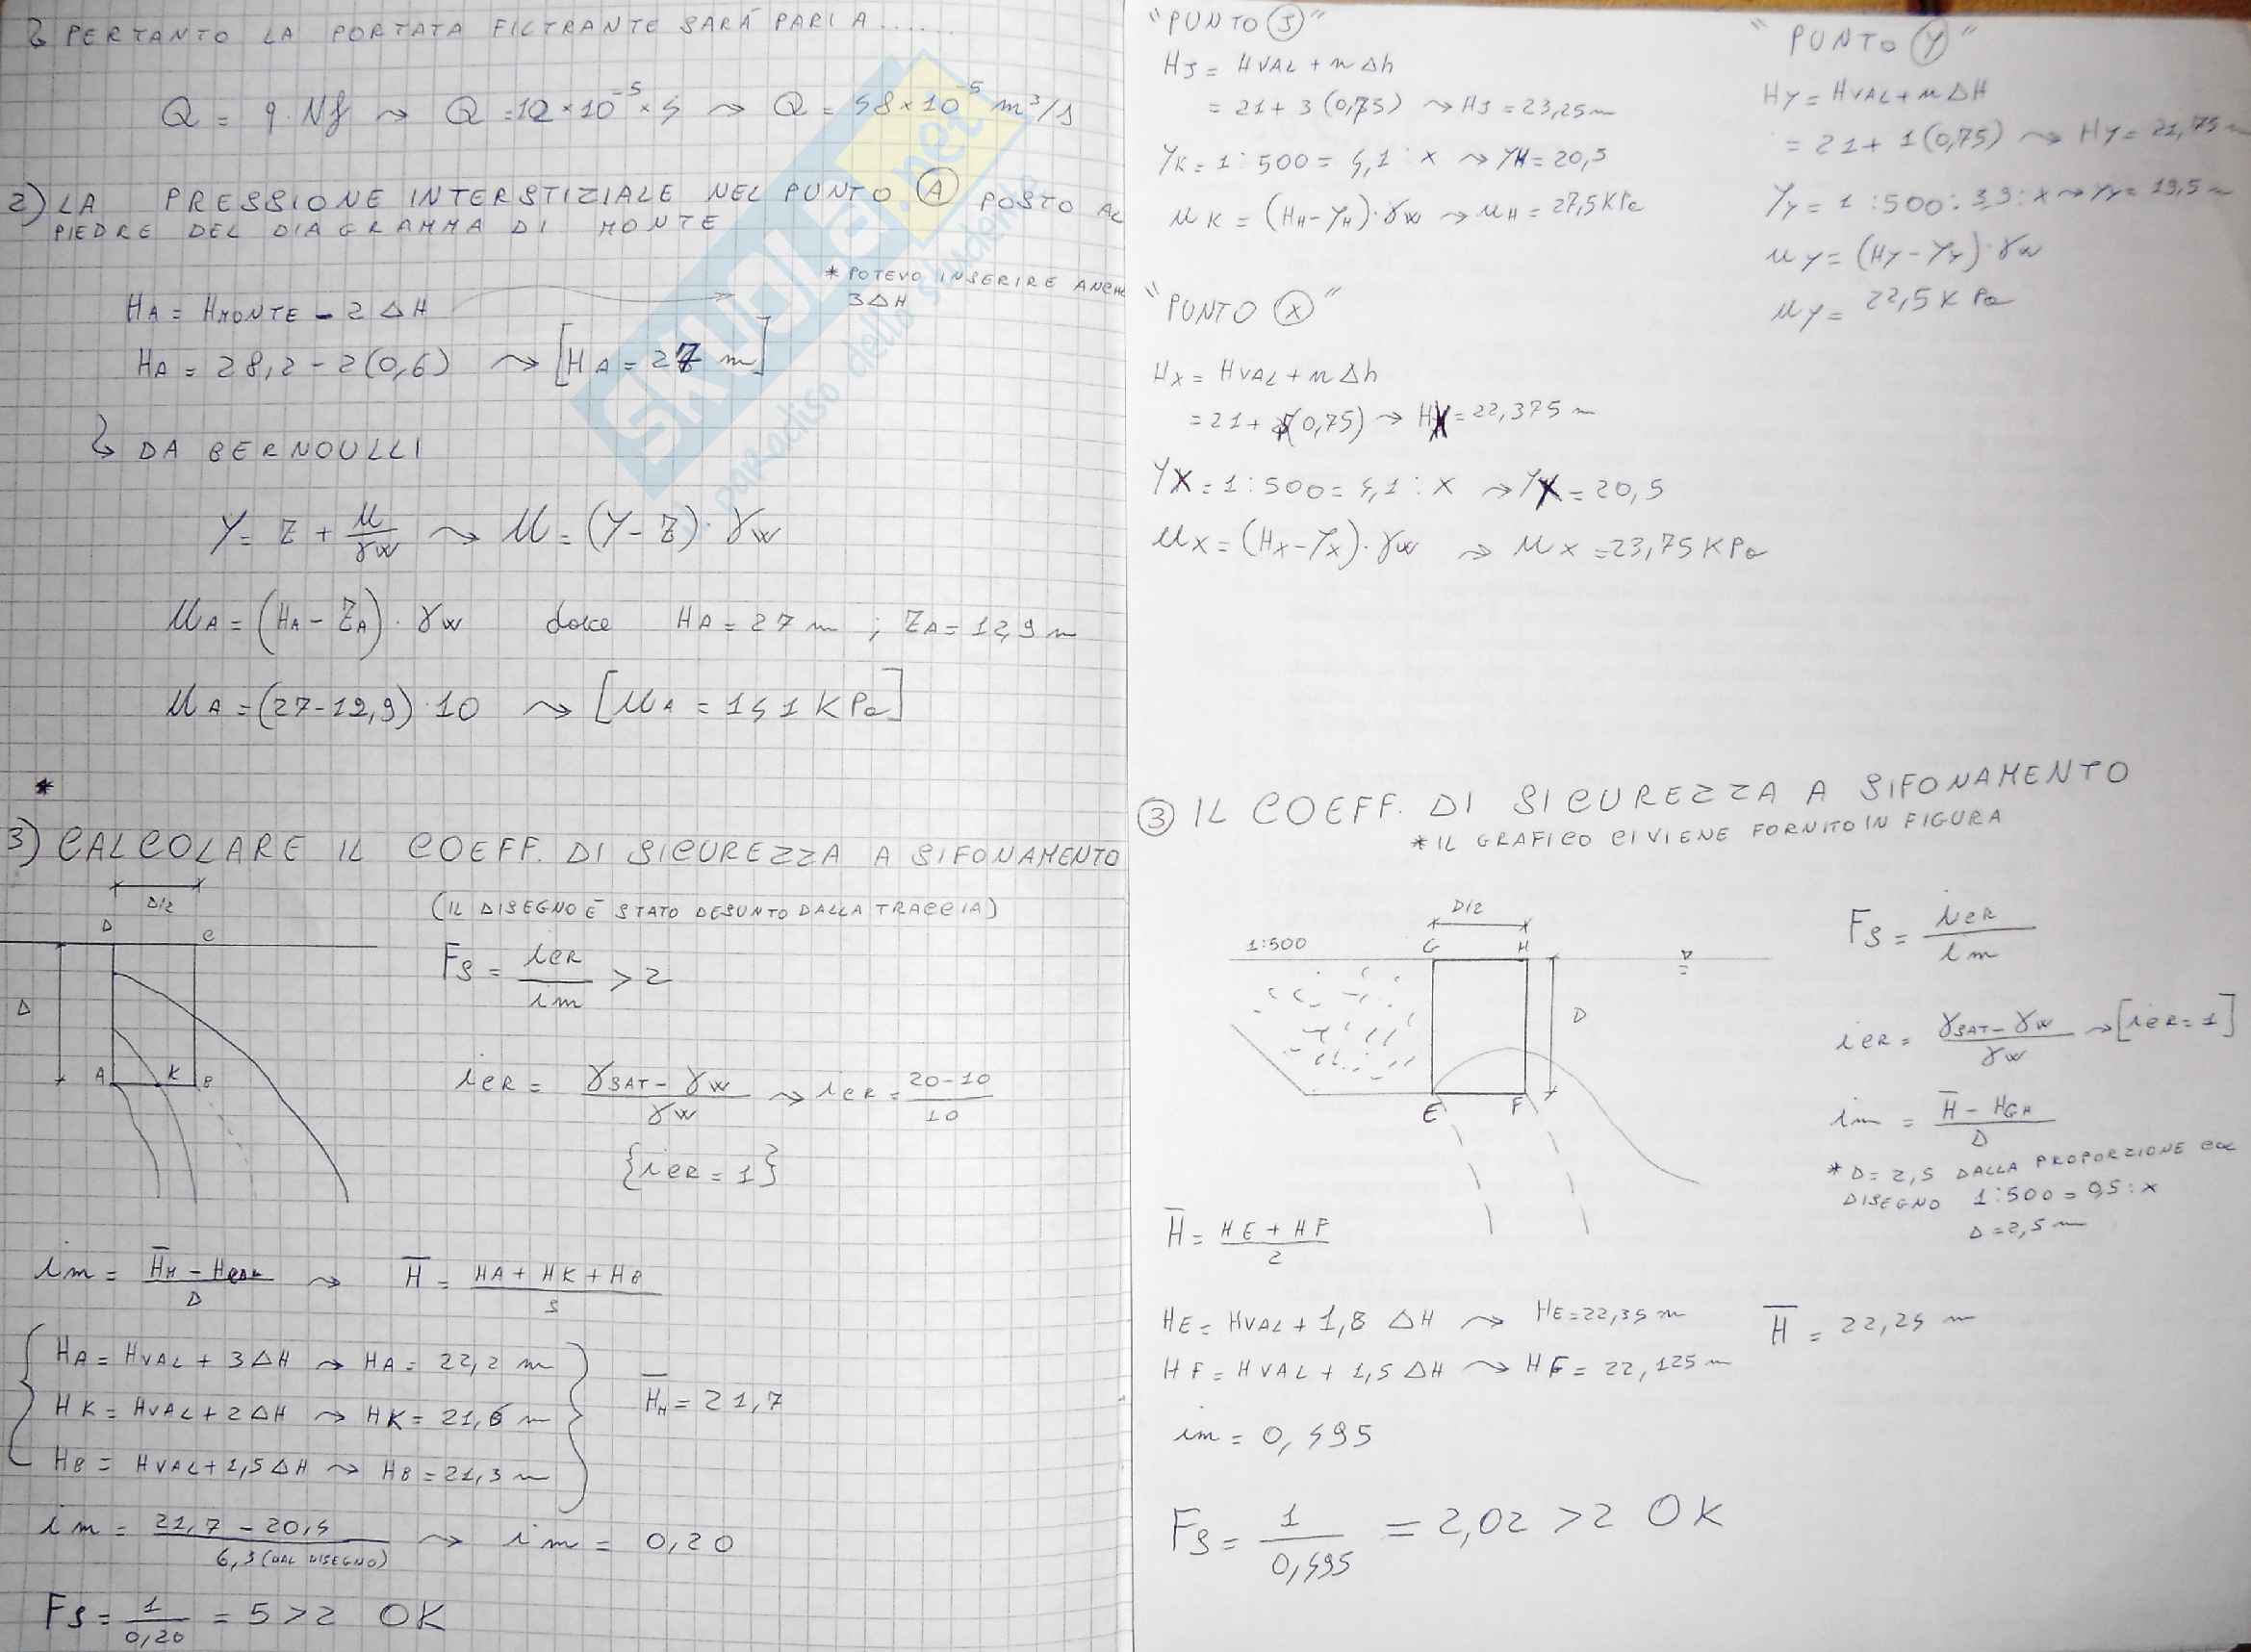 ↳ PERTANTO LA PORTATA FILTRANTE SARÁ PARI A......
Q = q·Nf ⇝ Q = 12×10⁻⁵×4 ⇝ Q = 48×10⁻⁵ m³/s
2) LA PRESSIONE INTERSTIZIALE NEL PUNTO (A) POSTO AL
PIEDRE DEL DIAGRAMMA DI MONTE
* POTEVO INSERIRE ANCHE
3ΔH
HA = HMONTE - 2ΔH
HA = 28,2 - 2(0,6) ⇝ [HA = 27 m]
↳ DA BERNOULLI
Y = Z + u/γw ⇝ u = (Y-Z)·γw
uA = (HA - ZA)·γw dove HA = 27 m ; ZA = 12,9 m
uA = (27-12,9)·10 ⇝ [uA = 141 KPa]
*
3) CALCOLARE IL COEFF. DI SICUREZZA A SIFONAMENTO
D/2
(IL DISEGNO É STATO DESUNTO DALLA TRACCIA)
D C
D
A K B
FS = icR/im > 2
icR = (γSAT - γw)/γw ⇝ icR = (20-10)/10
{icR = 1}
⇝ H̄ = (HA + HK + HB)/3
HA = HVAL + 3ΔH ⇝ HA = 22,2 m
HK = HVAL + 2ΔH ⇝ HK = 21,6 m
HB = HVAL + 1,5ΔH ⇝ HB = 21,3 m
H̄M = 21,7
im = (21,7 - 20,4)/6,3 (DAL DISEGNO) ⇝ im = 0,20
FS = 1/0,20 = 5 > 2 OK
"PUNTO (J)"
HJ = HVAL + nΔh
= 21 + 3(0,75) ⇝ HJ = 23,25 m
YK = 1:500 = 4,1:x ⇝ YH = 20,5
uK = (HH - YH)·γw ⇝ uH = 27,5 KPa
"PUNTO (X)"
HX = HVAL + nΔh
= 21 + (0,75) → HX = 22,375 m
YX = 1:500 = 4,1:x → YX = 20,5
uX = (HX - YX)·γw ⇝ uX = 23,75 KPa
"PUNTO (Y)"
HY = HVAL + nΔH
= 21 + 1(0,75) ⇝ HY = 21,75 m
YY = 1:500 = 3,9:x ⇝ YY = 19,5 m
uY = (HY - YY)·γw
uY = 22,5 KPa
(3) IL COEFF. DI SICUREZZA A SIFONAMENTO
* IL GRAFICO CI VIENE FORNITO IN FIGURA
D/2
1:500
G H
D
E F
FS = icR/im
icR = (γSAT - γw)/γw → [icR = 1]
im = (H̄ - HGH)/D
* D = 2,5 DALLA PROPORZIONE COL
DISEGNO 1:500 = 0,5:x
D = 2,5 m
H̄ = (HE + HF)/2
HE = HVAL + 1,8 ΔH ⇝ HE = 22,35 m
HF = HVAL + 1,5 ΔH ⇝ HF = 22,125 m
H̄ = 22,24 m
im = 0,495
FS = 1/0,495 = 2,02 > 2 OK
SKUOLA.net
paradiso dello studente